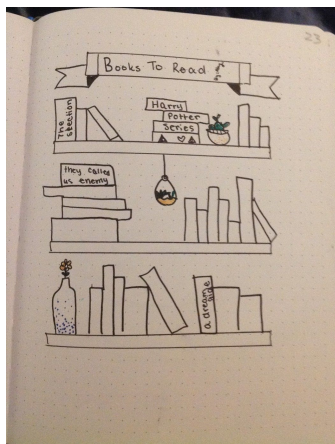 23
Books To Read
The
selection
Harry
Potter
Series
they called
us enemy
a dream